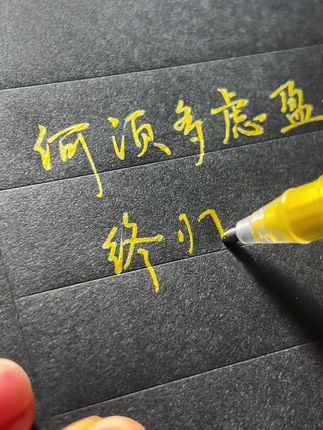 何须多虑盈
终